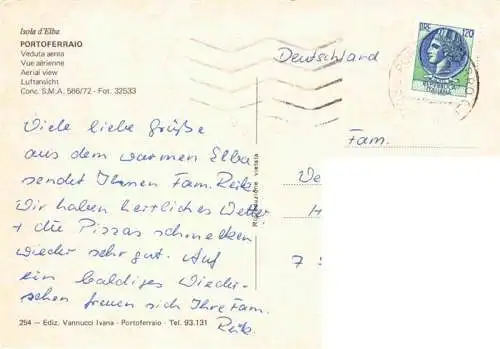 Isola d'Elba
PORTOFERRAIO
Veduta aerea
Vue aérienne
Aerial view
Luftansicht
Conc. S.M.A. 586/72 - Fot. 32533
Viele liebe Grüße
aus dem warmen Elba
sendet Ihnen Fam. Reik.
Wir haben herrliches Wetter
+ die Pizzas schmecken
wieder sehr gut. Auf
ein baldiges Wieder-
sehen freuen sich Ihre Fam.
Reik.
254 — Ediz. Vannucci Ivana - Portoferraio - Tel. 93.131
Riproduzione vietata
Deutschland
LIRE 120
Fam.
We
H
7